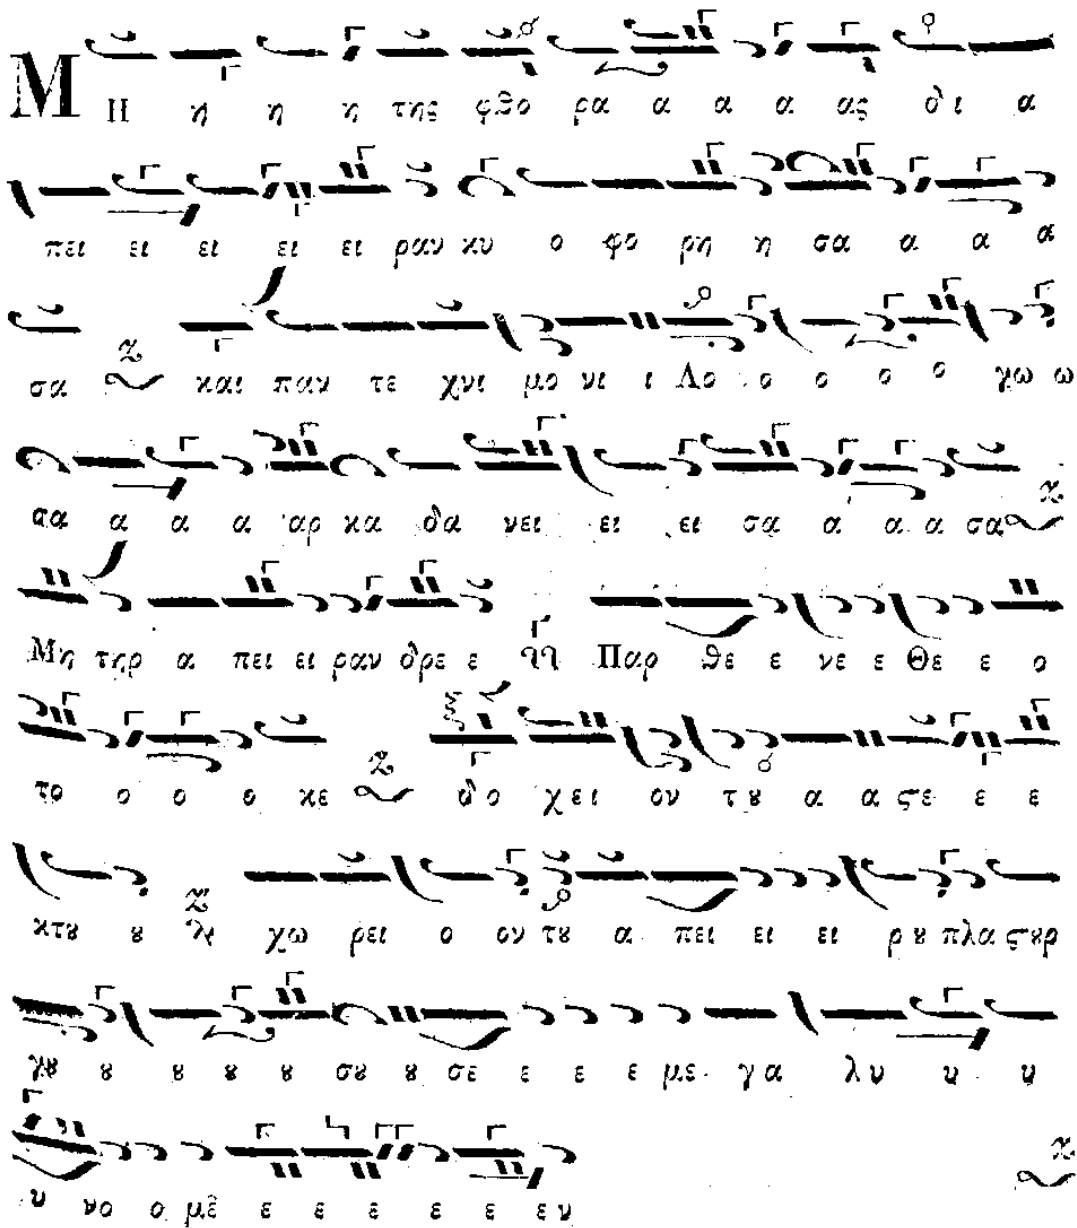 Μ Η η η η της φθο ρα α α α ας δι α
πει ει ει ει ει ραν κυ ο φο ρη η σα α α α
σα και παν τε χνι μο νι ι Λο ο ο ο ο γω ω
σα α α α αρ κα δα νει ει ει σα α α α σα
Μη τηρ α πει ει ραν δρε ε Παρ θε ε νε ε Θε ε ο
το ο ο ο κε δο χει ον τȣ α α ϛε ε ε
κτȣ ȣ χω ρει ο ον τȣ α πει ει ει ρȣ πλα ϛȣρ
γȣ ȣ ȣ ȣ ȣ σȣ ȣ σε ε ε ε με γα λυ υ υ
υ νο ο με ε ε ε ε ε εν